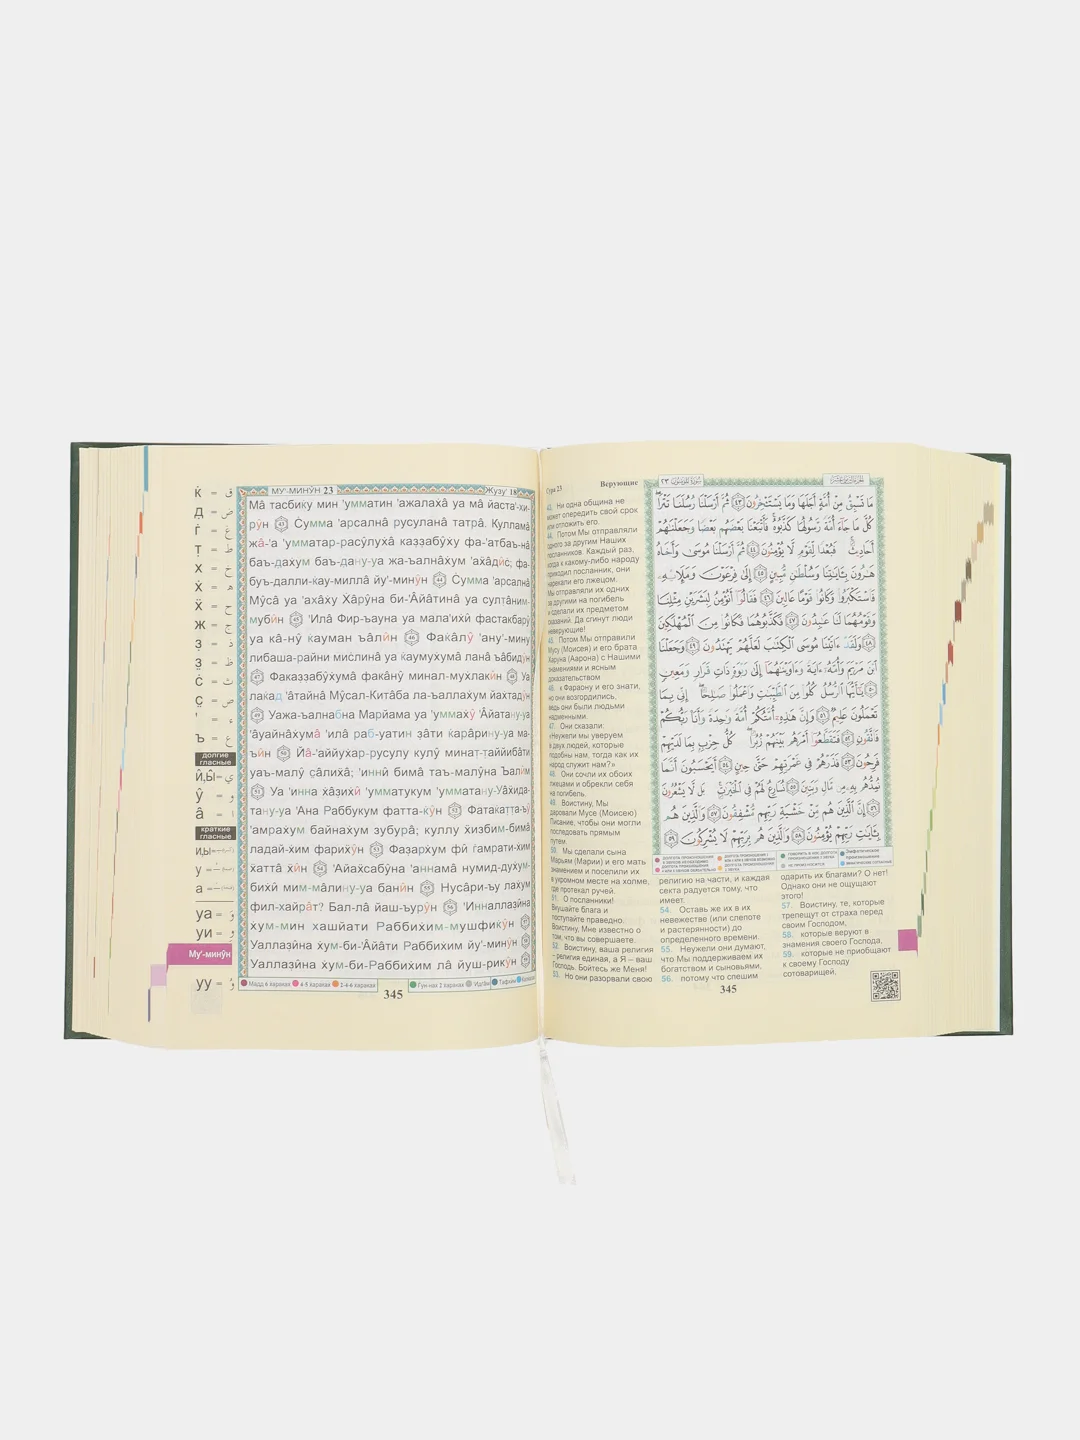 Ќ = ق
Д = ض
Ѓ = غ
Т = ط
Х = خ
Ж = ج
Ъ = ع
долгие гласные
Й,Ы̂ = ي
Ӯ = و
Â = ا
краткие гласные
И,Ы
у
а
уа = وَ
уи = وِ
Му'-минӯн
уу = وُ
МУ'-МИНӮН 23 Жузу' 18
Мâ тасбиќу мин 'умматин 'ажалахâ уа мâ йаста'-хи-
рӯн 43 Сумма 'арсалнâ русуланâ татрâ. Кулламâ
жâ-'а 'умматар-расӯлухâ каззабӯху фа-'атбаъ-нâ
баъ-дахум баъ-дану-уа жа-ъалнâхум 'ахâдис; фа-
буъ-далли-ќау-миллâ йу'-минӯн 44 Сумма 'арсалнâ
Мӯсâ уа 'ахâху Хâрӯна би-'Âйâтинâ уа султâним-
мубӣн 45 'Илâ Фир-ъауна уа мала'ихӣ фастакбарӯ
уа кâ-нӯ ќауман ъâлӣн 46 Фаќâлӯ 'ану'-мину
либаша-райни мислинâ уа ќаумухумâ ланâ ъâбидӯн
47 Факаззабӯхумâ факâнӯ минал-мухлакӣн 48 Уа
лаќад 'âтайнâ Мӯсал-Китâба ла-ъаллахум йахтадӯн
49 Уажа-ъалнабна Марйама уа 'уммахӯ 'Âйатану-уа
'âуайнâхумâ 'илâ раб-уатин зâти ќарâрину-уа ма-
ъӣн 50 Йâ-'аййухар-русулу кулӯ минат-таййибâти
уаъ-малӯ сâлихâ; 'иннӣ бимâ таъ-малӯна Ъалӣм
51 Уа 'инна хâзихӣ 'умматукум 'умматану-Уâхида-
тану-уа 'Ана Раббукум фатта-ќӯн 52 Фатаќатта-ъӯ
'амрахум байнахум зубурâ; куллу хизбим-бимâ
ладай-хим фарихӯн 53 Фазархум фӣ ѓамрати-хим
хаттâ хӣн 54 'Айахсабӯна 'аннамâ нумид-духум-
бихӣ мим-мâлину-уа банӣн 55 Нусâри-ъу лахум
фил-хайрâт? Бал-лâ йаш-ъурӯн 56 'Инналлазӣна
хум-мин хашйати Раббихим-мушфиќӯн 57
Уаллазӣна хум-би-'Âйâти Раббихим йу'-минӯн 58
Уаллазӣна хум-би-Раббихим лâ йуш-рикӯн 59
Мадд 6 харакая 4-5 харакая 2-4-6 харакая Гун-нах 2 харакая Идѓâм Тафхим
345
Сура 23 Верующие
43. Ни одна община не
может опередить свой срок
или отложить его.
44. Потом Мы отправляли
одного за другим Наших
посланников. Каждый раз,
когда к какому-либо народу
приходил посланник, они
нарекали его лжецом.
Мы отправляли их одних
за другими на погибель
и сделали их предметом
сказаний. Да сгинут люди
неверующие!
45. Потом Мы отправили
Мусу (Моисея) и его брата
Харуна (Аарона) с Нашими
знамениями и ясным
доказательством
46. к Фараону и его знати,
но они возгордились,
ведь они были людьми
надменными.
47. Они сказали:
«Неужели мы уверуем
в двух людей, которые
подобны нам, тогда как их
народ служит нам?»
48. Они сочли их обоих
лжецами и обрекли себя
на погибель.
49. Воистину, Мы
даровали Мусе (Моисею)
Писание, чтобы они могли
последовать прямым
путем.
50. Мы сделали сына
Марьям (Марии) и его мать
знамением и поселили их
в укромном месте на холме,
где протекал ручей.
51. О посланники!
Вкушайте блага и
поступайте праведно.
Воистину, Мне известно о
том, что вы совершаете.
52. Воистину, ваша религия
– религия единая, а Я – ваш
Господь. Бойтесь же Меня!
53. Но они разорвали свою
سُورَةُ المُؤْمِنُونَ ٢٣
مَا تَسْبِقُ مِنْ أُمَّةٍ أَجَلَهَا وَمَا يَسْتَـْٔخِرُونَ ٤٣ ثُمَّ أَرْسَلْنَا رُسُلَنَا تَتْرَا
كُلَّ مَا جَآءَ أُمَّةً رَّسُولُهَا كَذَّبُوهُ فَأَتْبَعْنَا بَعْضَهُم بَعْضًا وَجَعَلْنَـٰهُمْ
أَحَادِيثَ فَبُعْدًا لِّقَوْمٍ لَّا يُؤْمِنُونَ ٤٤ ثُمَّ أَرْسَلْنَا مُوسَىٰ وَأَخَاهُ
هَـٰرُونَ بِـَٔايَـٰتِنَا وَسُلْطَـٰنٍ مُّبِينٍ ٤٥ إِلَىٰ فِرْعَوْنَ وَمَلَإِيْهِۦ
فَٱسْتَكْبَرُوا۟ وَكَانُوا۟ قَوْمًا عَالِينَ ٤٦ فَقَالُوٓا۟ أَنُؤْمِنُ لِبَشَرَيْنِ مِثْلِنَا
وَقَوْمُهُمَا لَنَا عَـٰبِدُونَ ٤٧ فَكَذَّبُوهُمَا فَكَانُوا۟ مِنَ ٱلْمُهْلَكِينَ
٤٨ وَلَقَدْ ءَاتَيْنَا مُوسَى ٱلْكِتَـٰبَ لَعَلَّهُمْ يَهْتَدُونَ ٤٩ وَجَعَلْنَا
ٱبْنَ مَرْيَمَ وَأُمَّهُۥٓ ءَايَةً وَءَاوَيْنَـٰهُمَآ إِلَىٰ رَبْوَةٍ ذَاتِ قَرَارٍ وَمَعِينٍ
٥٠ يَـٰٓأَيُّهَا ٱلرُّسُلُ كُلُوا۟ مِنَ ٱلطَّيِّبَـٰتِ وَٱعْمَلُوا۟ صَـٰلِحًا إِنِّى بِمَا
تَعْمَلُونَ عَلِيمٌ ٥١ وَإِنَّ هَـٰذِهِۦٓ أُمَّتُكُمْ أُمَّةً وَٰحِدَةً وَأَنَا۠ رَبُّكُمْ
فَٱتَّقُونِ ٥٢ فَتَقَطَّعُوٓا۟ أَمْرَهُم بَيْنَهُمْ زُبُرًا كُلُّ حِزْبٍۭ بِمَا لَدَيْهِمْ
فَرِحُونَ ٥٣ فَذَرْهُمْ فِى غَمْرَتِهِمْ حَتَّىٰ حِينٍ ٥٤ أَيَحْسَبُونَ أَنَّمَا
نُمِدُّهُم بِهِۦ مِن مَّالٍ وَبَنِينَ ٥٥ نُسَارِعُ لَهُمْ فِى ٱلْخَيْرَٰتِ بَل لَّا يَشْعُرُونَ
٥٦ إِنَّ ٱلَّذِينَ هُم مِّنْ خَشْيَةِ رَبِّهِم مُّشْفِقُونَ ٥٧ وَٱلَّذِينَ هُم
بِـَٔايَـٰتِ رَبِّهِمْ يُؤْمِنُونَ ٥٨ وَٱلَّذِينَ هُم بِرَبِّهِمْ لَا يُشْرِكُونَ ٥٩
религию на части, и каждая
секта радуется тому, что
имеет.
54. Оставь же их в их
невежестве (или слепоте
и растерянности) до
определенного времени.
55. Неужели они думают,
что Мы поддерживаем их
богатством и сыновьями,
56. потому что спешим
одарить их благами? О нет!
Однако они не ощущают
этого!
57. Воистину, те, которые
трепещут от страха перед
своим Господом,
58. которые веруют в
знамения своего Господа,
59. которые не приобщают
к своему Господу
сотоварищей,
345